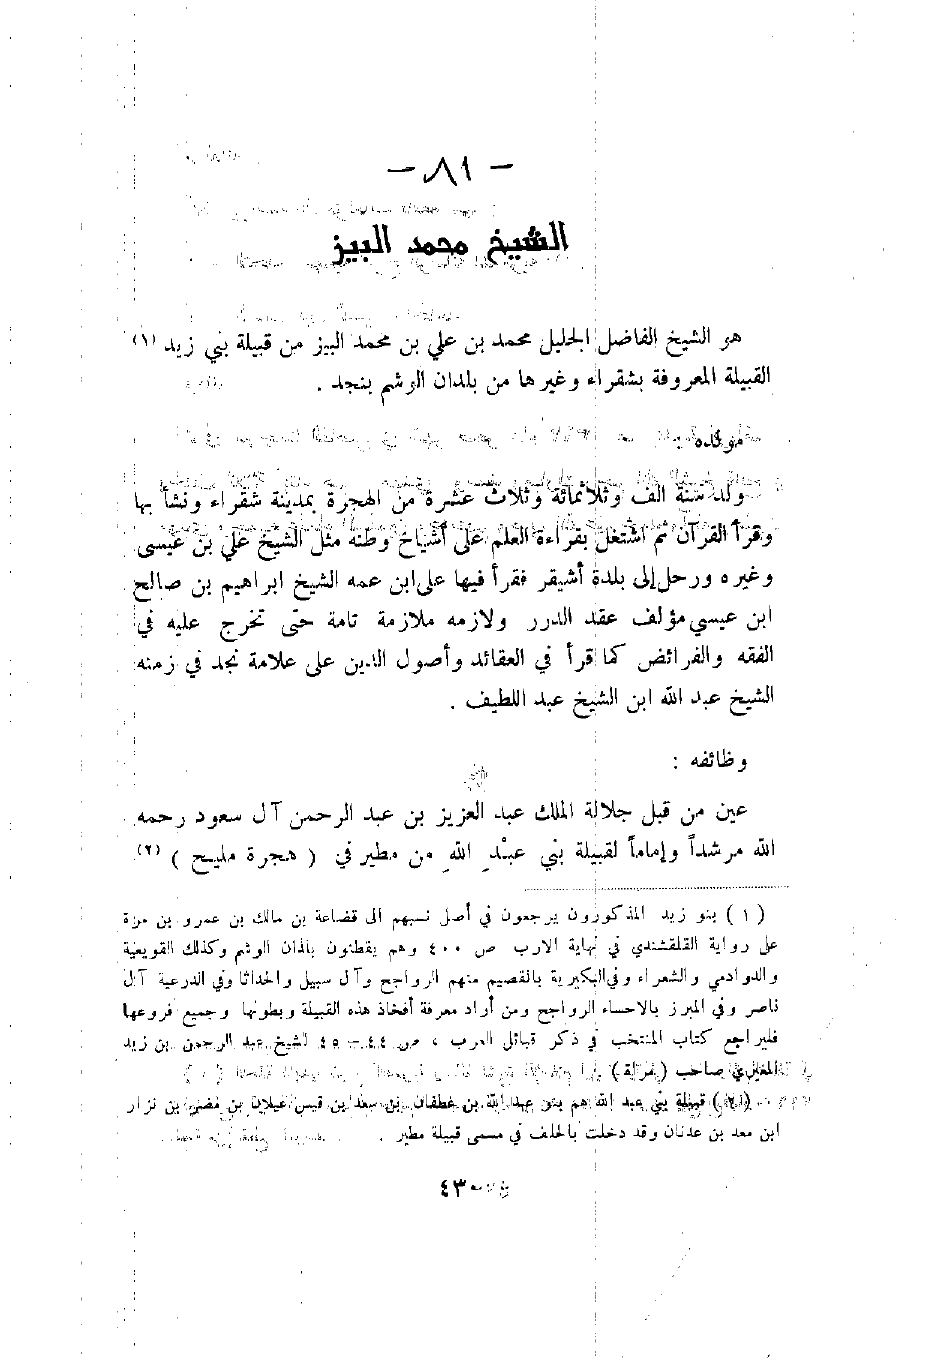 - ٨١ -
الشيخ محمد البيز
هو الشيخ الفاضل الجليل محمد بن علي بن محمد البيز من قبيلة بني زيد (١)
القبيلة المعروفة بشقراء وغيرها من بلدان الوشم بنجد .
مولده :
ولد سنة الف وثلاثمائة وثلاث عشرة من الهجرة بمدينة شقراء ونشأ بها
وقرأ القرآن ثم اشتغل بقراءة العلم على أشياخ وطنه مثل الشيخ علي بن عيسى
وغيره ورحل إلى بلدة أشيقر فقرأ فيها على ابن عمه الشيخ ابراهيم بن صالح
ابن عيسي مؤلف عقد الدرر ولازمه ملازمة تامة حتى تخرج عليه في
الفقه والفرائض كما قرأ في العقائد وأصول الدين على علامة نجد في زمنه
الشيخ عبد الله ابن الشيخ عبد اللطيف .
وظائفه :
عين من قبل جلالة الملك عبد العزيز بن عبد الرحمن آل سعود رحمه
الله مرشداً وإماماً لقبيلة بني عبْدِ اللهِ من مطير في ( هجرة مليح ) (٢)
( ١ ) بنو زيد المذكورون يرجعون في أصل نسبهم الى قضاعة بن مالك بن عمرو بن مرة
على رواية القلقشندي في نهاية الارب ص ٤٠٠ وهم يقطنون بلدان الوشم وكذلك القويعية
والدوادمي والشعراء وفي البكيرية بالقصيم منهم الرواجح وآل سبيل والخداثا وفي الدرعية آل
ناصر وفي المبرز بالاحساء الرواجح ومن أراد معرفة أفخاذ هذه القبيلة وبطونها وجميع فروعها
فليراجع كتاب المنتخب في ذكر قبائل العرب ، ص ٤٤ - ٤٥ لشيخ عبد الرحمن بن زيد
المغيري صاحب
( ٢ ) قبيلة بني عبد الله هم بنو عبد الله بن غطفان بن سعد بن قيس عيلان بن مضر بن نزار
ابن معد بن عدنان وقد دخلت بالحلف في مسمى قبيلة مطير .
٤٣٠